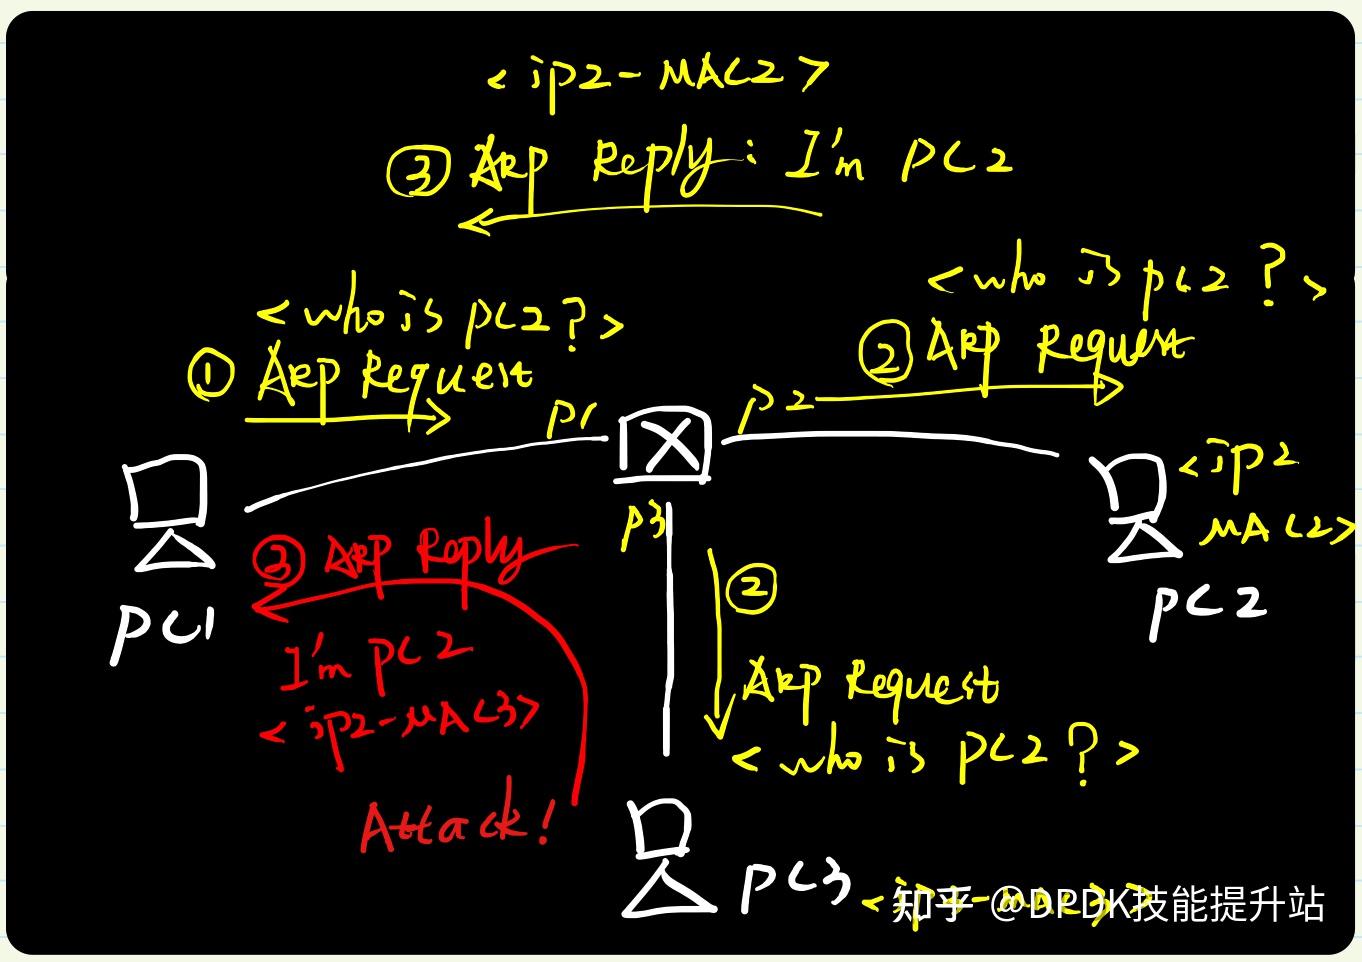 <ip2-MAC2>
③ ARP Reply: I'm PC2
<who is PC2?>
① ARP Request
<who is PC2?>
② ARP Request
P1
P2
P3
<ip2
MAC2>
PC1
PC2
③ ARP Reply
I'm PC2
<ip2-MAC3>
Attack!
②
ARP Request
<who is PC2?>
PC3
知乎 @DPDK技能提升站